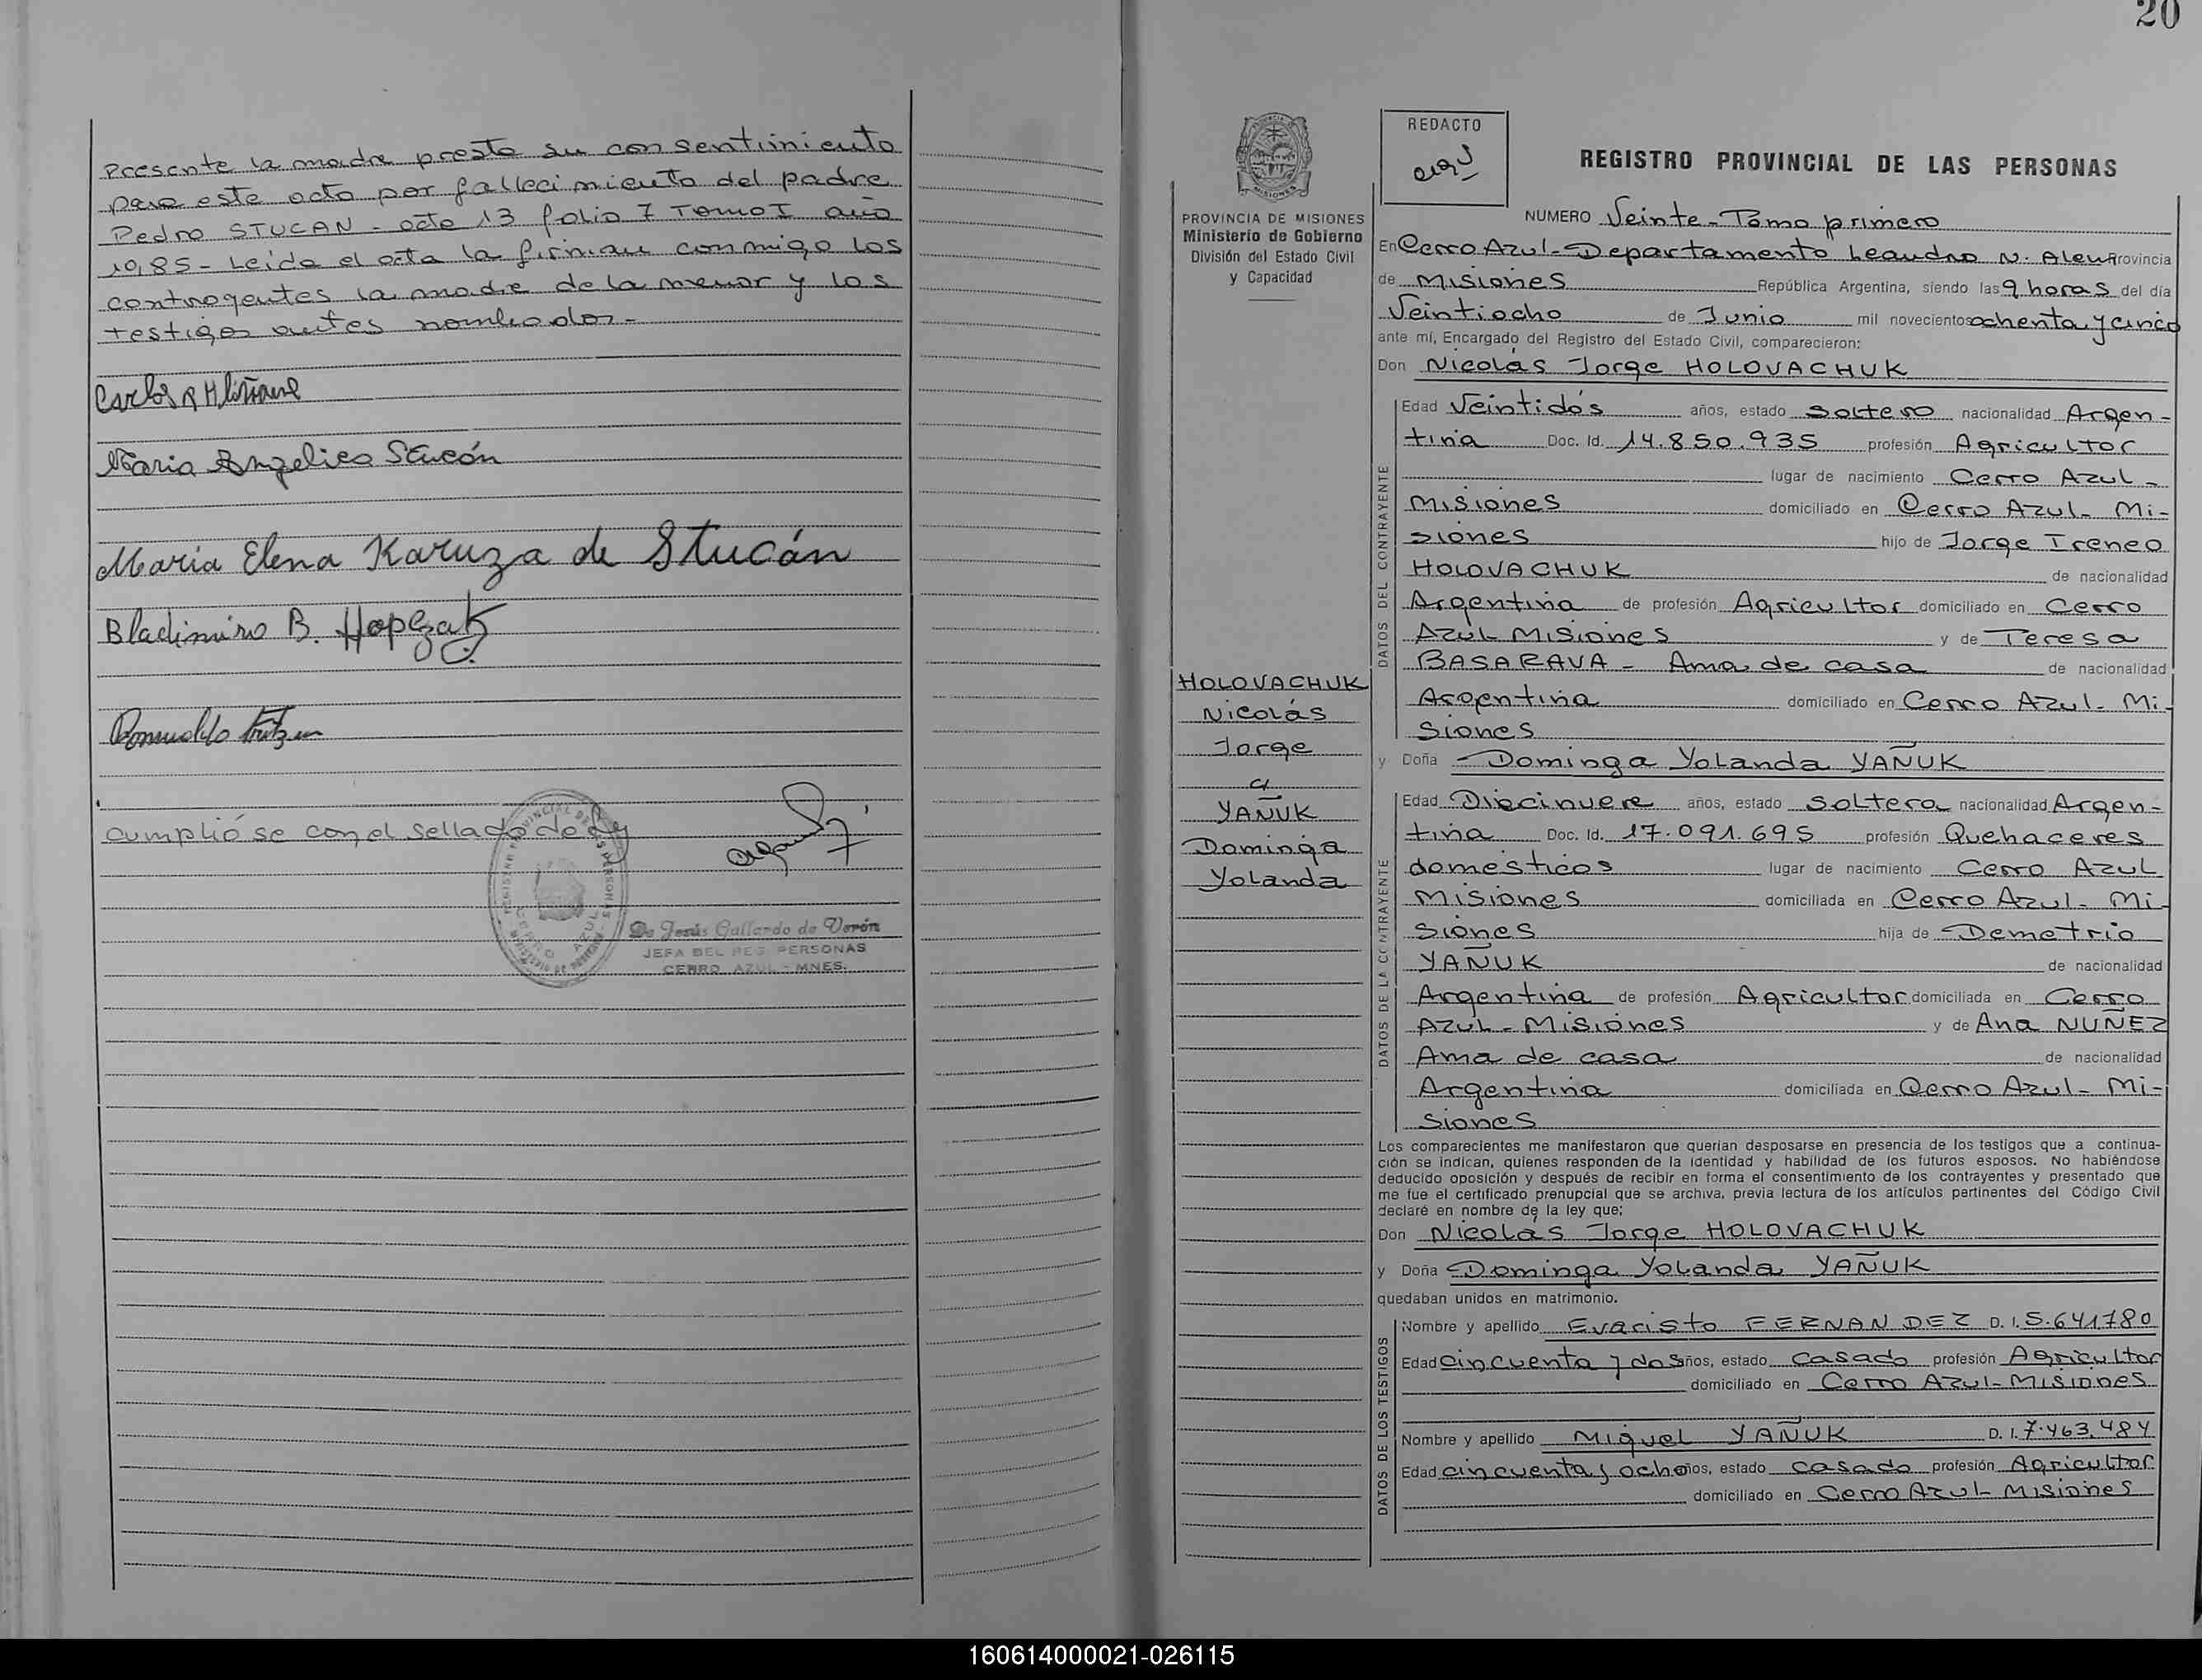 Presente la madre presta su consentimiento
para este acto por fallecimiento del padre
Pedro STUCAN - acta 13 folio 7 Tomo I año
1985 - Leida el acta la firman conmigo los
contrayentes la madre de la menor y los
testigos antes nombrados -
Carlos
Maria Angelica Stucán
Maria Elena Karuza de Stucán
Bladimiro B. Hopczak
Romualdo
cumplió se con el sellado de ley
REGISTRO PROVINCIAL DE LAS PERSONAS
CERRO AZUL
De Jesús Gallardo de Verón
JEFA DEL REG. PERSONAS
CERRO AZUL - MNES.
20
PROVINCIA DE MISIONES
Ministerio de Gobierno
División del Estado Civil
y Capacidad
HOLOVACHUK
Nicolás
Jorge
c/
YAÑUK
Dominga
Yolanda
REDACTO
REGISTRO PROVINCIAL DE LAS PERSONAS
NUMERO Veinte - Tomo primero
En Cerro Azul - Departamento Leandro N. Alem Provincia
de Misiones República Argentina, siendo las 9 horas del día
Veintiocho de Junio mil novecientos ochenta y cinco
ante mí, Encargado del Registro del Estado Civil, comparecieron:
Don Nicolás Jorge HOLOVACHUK
DATOS DEL CONTRAYENTE
Edad Veintidós años, estado soltero nacionalidad Argen-
tina Doc. Id. 14.850.935 profesión Agricultor
lugar de nacimiento Cerro Azul -
Misiones domiciliado en Cerro Azul - Mi-
siones hijo de Jorge Ireneo
HOLOVACHUK de nacionalidad
Argentina de profesión Agricultor domiciliado en Cerro
Azul Misiones y de Teresa
BASARAVA - Ama de casa de nacionalidad
Argentina domiciliado en Cerro Azul - Mi-
siones
y Doña - Dominga Yolanda YAÑUK
DATOS DE LA CONTRAYENTE
Edad Diecinueve años, estado soltera nacionalidad Argen-
tina Doc. Id. 17.091.695 profesión Quehaceres
domésticos lugar de nacimiento Cerro Azul
Misiones domiciliada en Cerro Azul - Mi-
siones hija de Demetrio
YAÑUK de nacionalidad
Argentina de profesión Agricultor domiciliada en Cerro
Azul - Misiones y de Ana NUÑEZ
Ama de casa de nacionalidad
Argentina domiciliada en Cerro Azul - Mi-
siones
Los comparecientes me manifestaron que querían desposarse en presencia de los testigos que a continua-
ción se indican, quienes responden de la identidad y habilidad de los futuros esposos. No habiéndose
deducido oposición y después de recibir en forma el consentimiento de los contrayentes y presentado que
me fue el certificado prenupcial que se archiva, previa lectura de los artículos pertinentes del Código Civil
declaré en nombre de la ley que:
Don Nicolás Jorge HOLOVACHUK
y Doña Dominga Yolanda YAÑUK
quedaban unidos en matrimonio.
DATOS DE LOS TESTIGOS
Nombre y apellido Evaristo FERNANDEZ D. I. 5.641780
Edad cincuenta y dos años, estado casado profesión Agricultor
domiciliado en Cerro Azul - Misiones
Nombre y apellido Miguel YAÑUK D. I. 7.463.484
Edad cincuenta y ocho años, estado casado profesión Agricultor
domiciliado en Cerro Azul Misiones
160614000021-026115